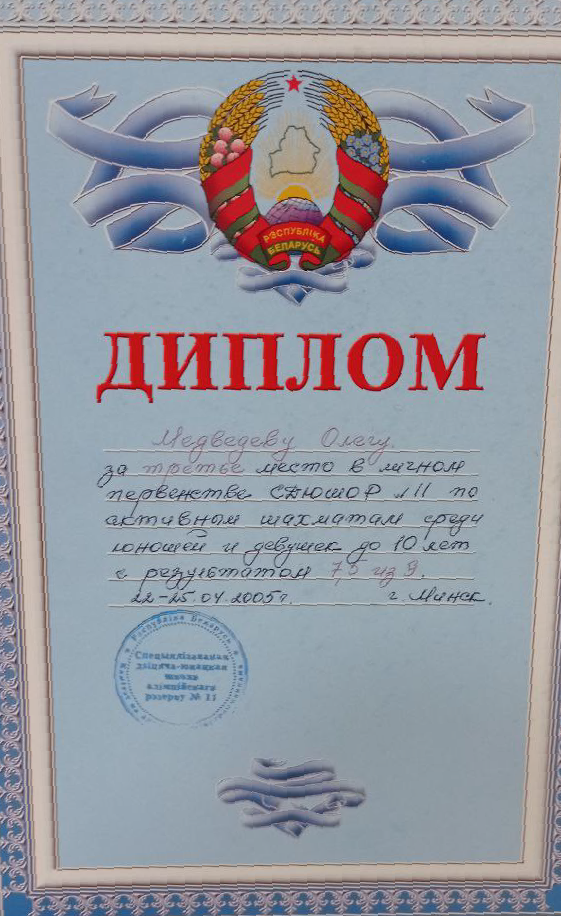 РЭСПУБЛІКА
БЕЛАРУСЬ
ДИПЛОМ
Медведеву Олегу
за третье место в личном
первенстве СДЮШОР №11 по
активным шахматам среди
юношей и девушек до 10 лет
с результатом 7,5 из 9.
22-25.04.2005г. г. Минск.
Рэспубліка Беларусь
Спецыялізаваная
дзіцяча-юнацкая
школа
алімпійскага
рэзерву № 11